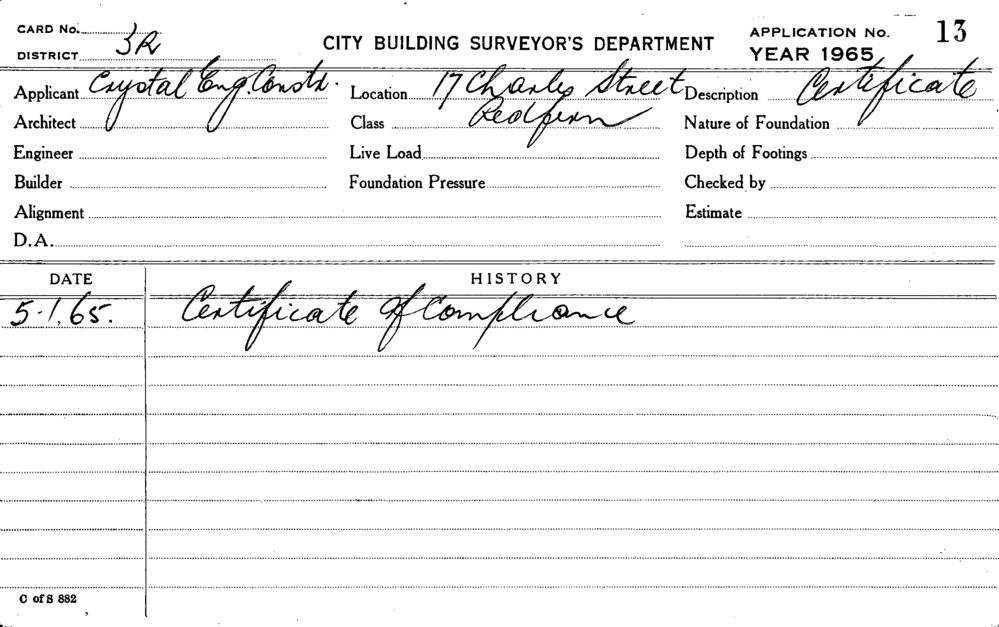 CARD No.
DISTRICT 3R
CITY BUILDING SURVEYOR'S DEPARTMENT
APPLICATION No. 13
YEAR 1965
Applicant Crystal Eng. Constr. Location 17 Charles Street Description Certificate
Architect Class Redfern Nature of Foundation
Engineer Live Load Depth of Footings
Builder Foundation Pressure Checked by
Alignment Estimate
D.A.
DATE HISTORY
5.1.65. Certificate of Compliance
C of S 882